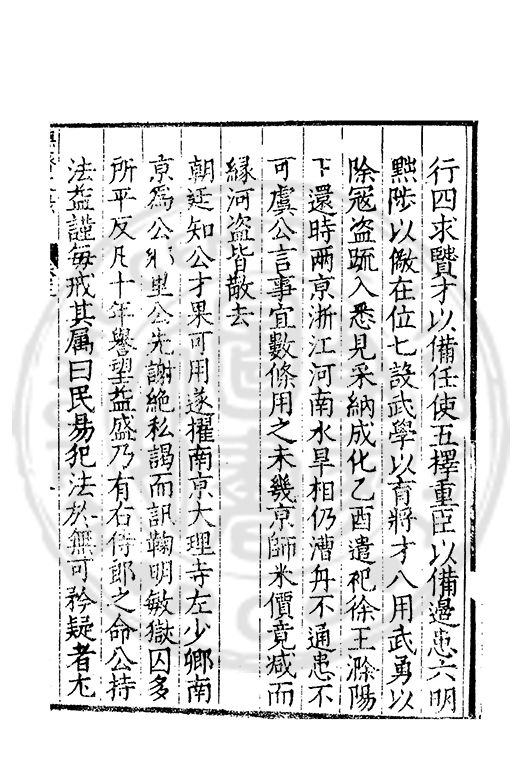 行四求賢才以備任使五擇重臣以備邊患六明
黜陟以儆在位七設武學以育將才八用武勇以
除冦盗疏入悉見采納成化乙酉遣祀徐王滁陽
下還時兩京浙江河南水旱相仍漕舟不通患不
可虞公言事宜數條用之未幾京師米價竟减而
縁河盗皆散去
朝廷知公才果可用遂擢南京大理寺左少卿南
京爲公鄉里公先謝絶私謁而訊鞠明敏獄囚多
所平反凡十年譽望益盛乃有右侍郎之命公持
法益謹每戒其属曰民易犯法於無可矜疑者尤